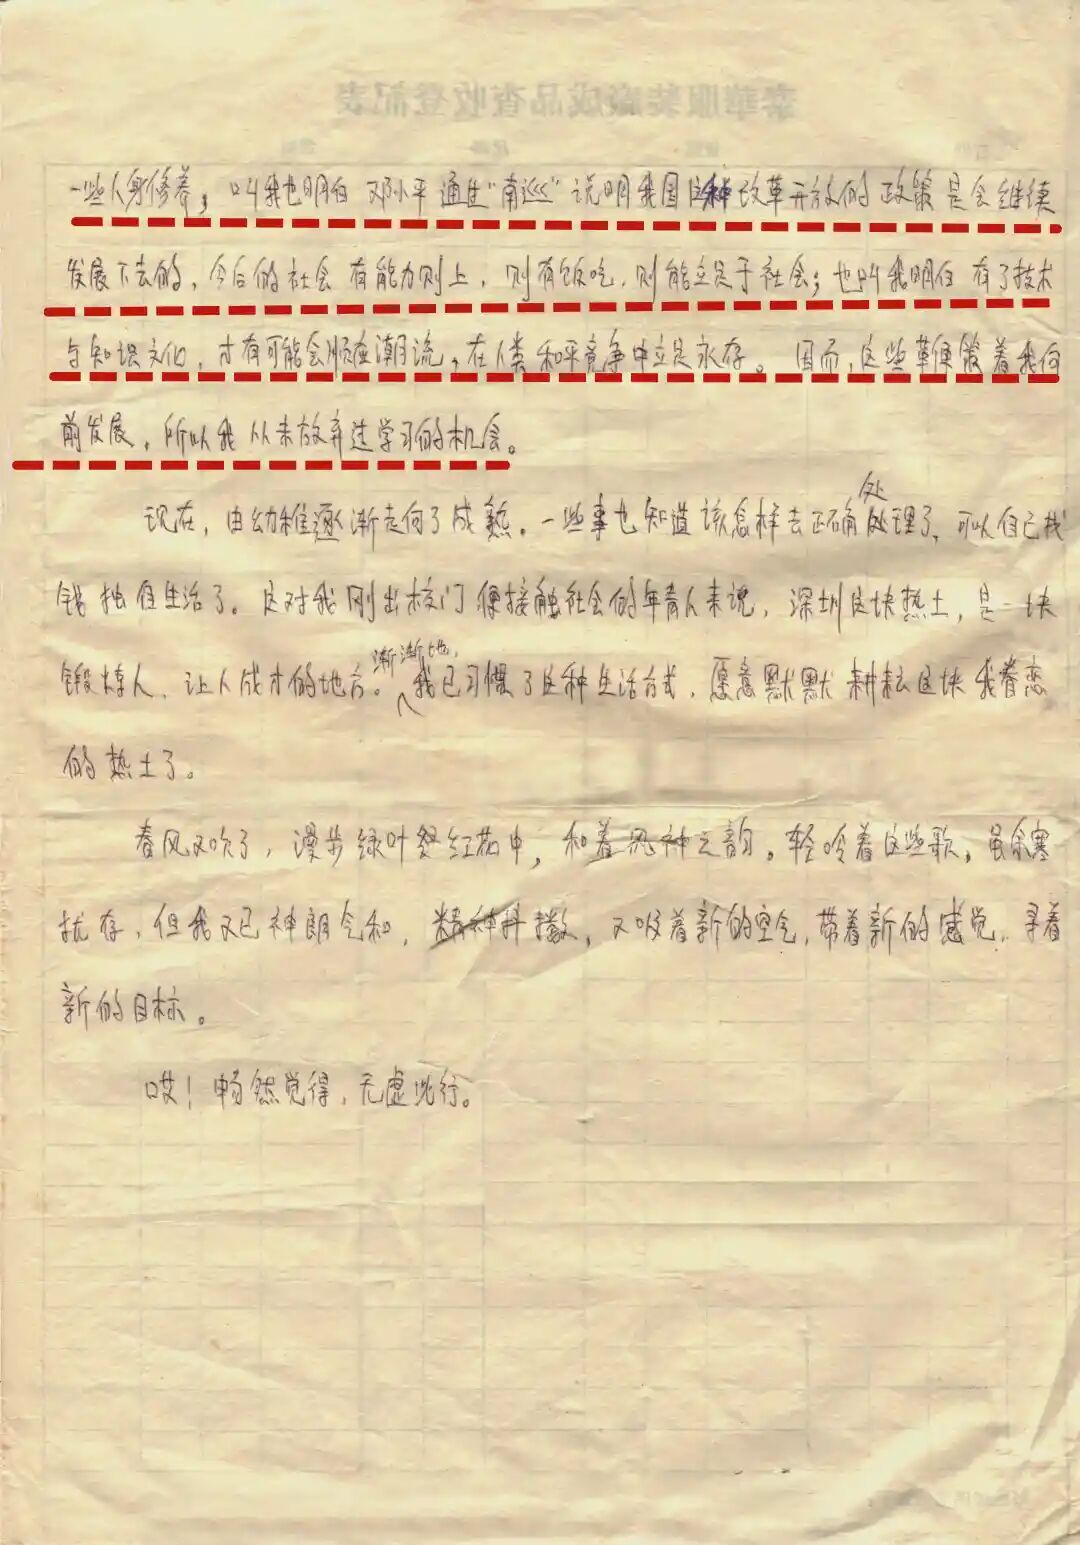 一些人身修养；叫我也明白邓小平通过“南巡”说明我国这种改革开放的政策是会继续
发展下去的，今后的社会有能力则上，则有饭吃，则能立足于社会；也叫我明白有了技术
与知识文化，才有可能会顺应潮流，在人类和平竞争中立足永存。因而，这些鞭策着我向
前发展，所以我从未放弃过学习的机会。
现在，由幼稚逐渐走向了成熟。一些事也知道该怎样去正确处理了，可以自己找
钱独自生活了。这对我刚出校门便接触社会的年青人来说，深圳这块热土，是一块
锻炼人、让人成才的地方。渐渐地，我已习惯了这种生活方式，愿意默默耕耘这块我眷恋
的热土了。
春风又吹了，漫步绿叶红花中，和着风神之韵。轻吟着这些歌，虽余寒
犹存，但我又已神朗气和，精神抖擞，又吸着新的空气，带着新的感觉，寻着
新的目标。
哎！畅然觉得，无虚此行。
泰華服装廠成品查收登記表